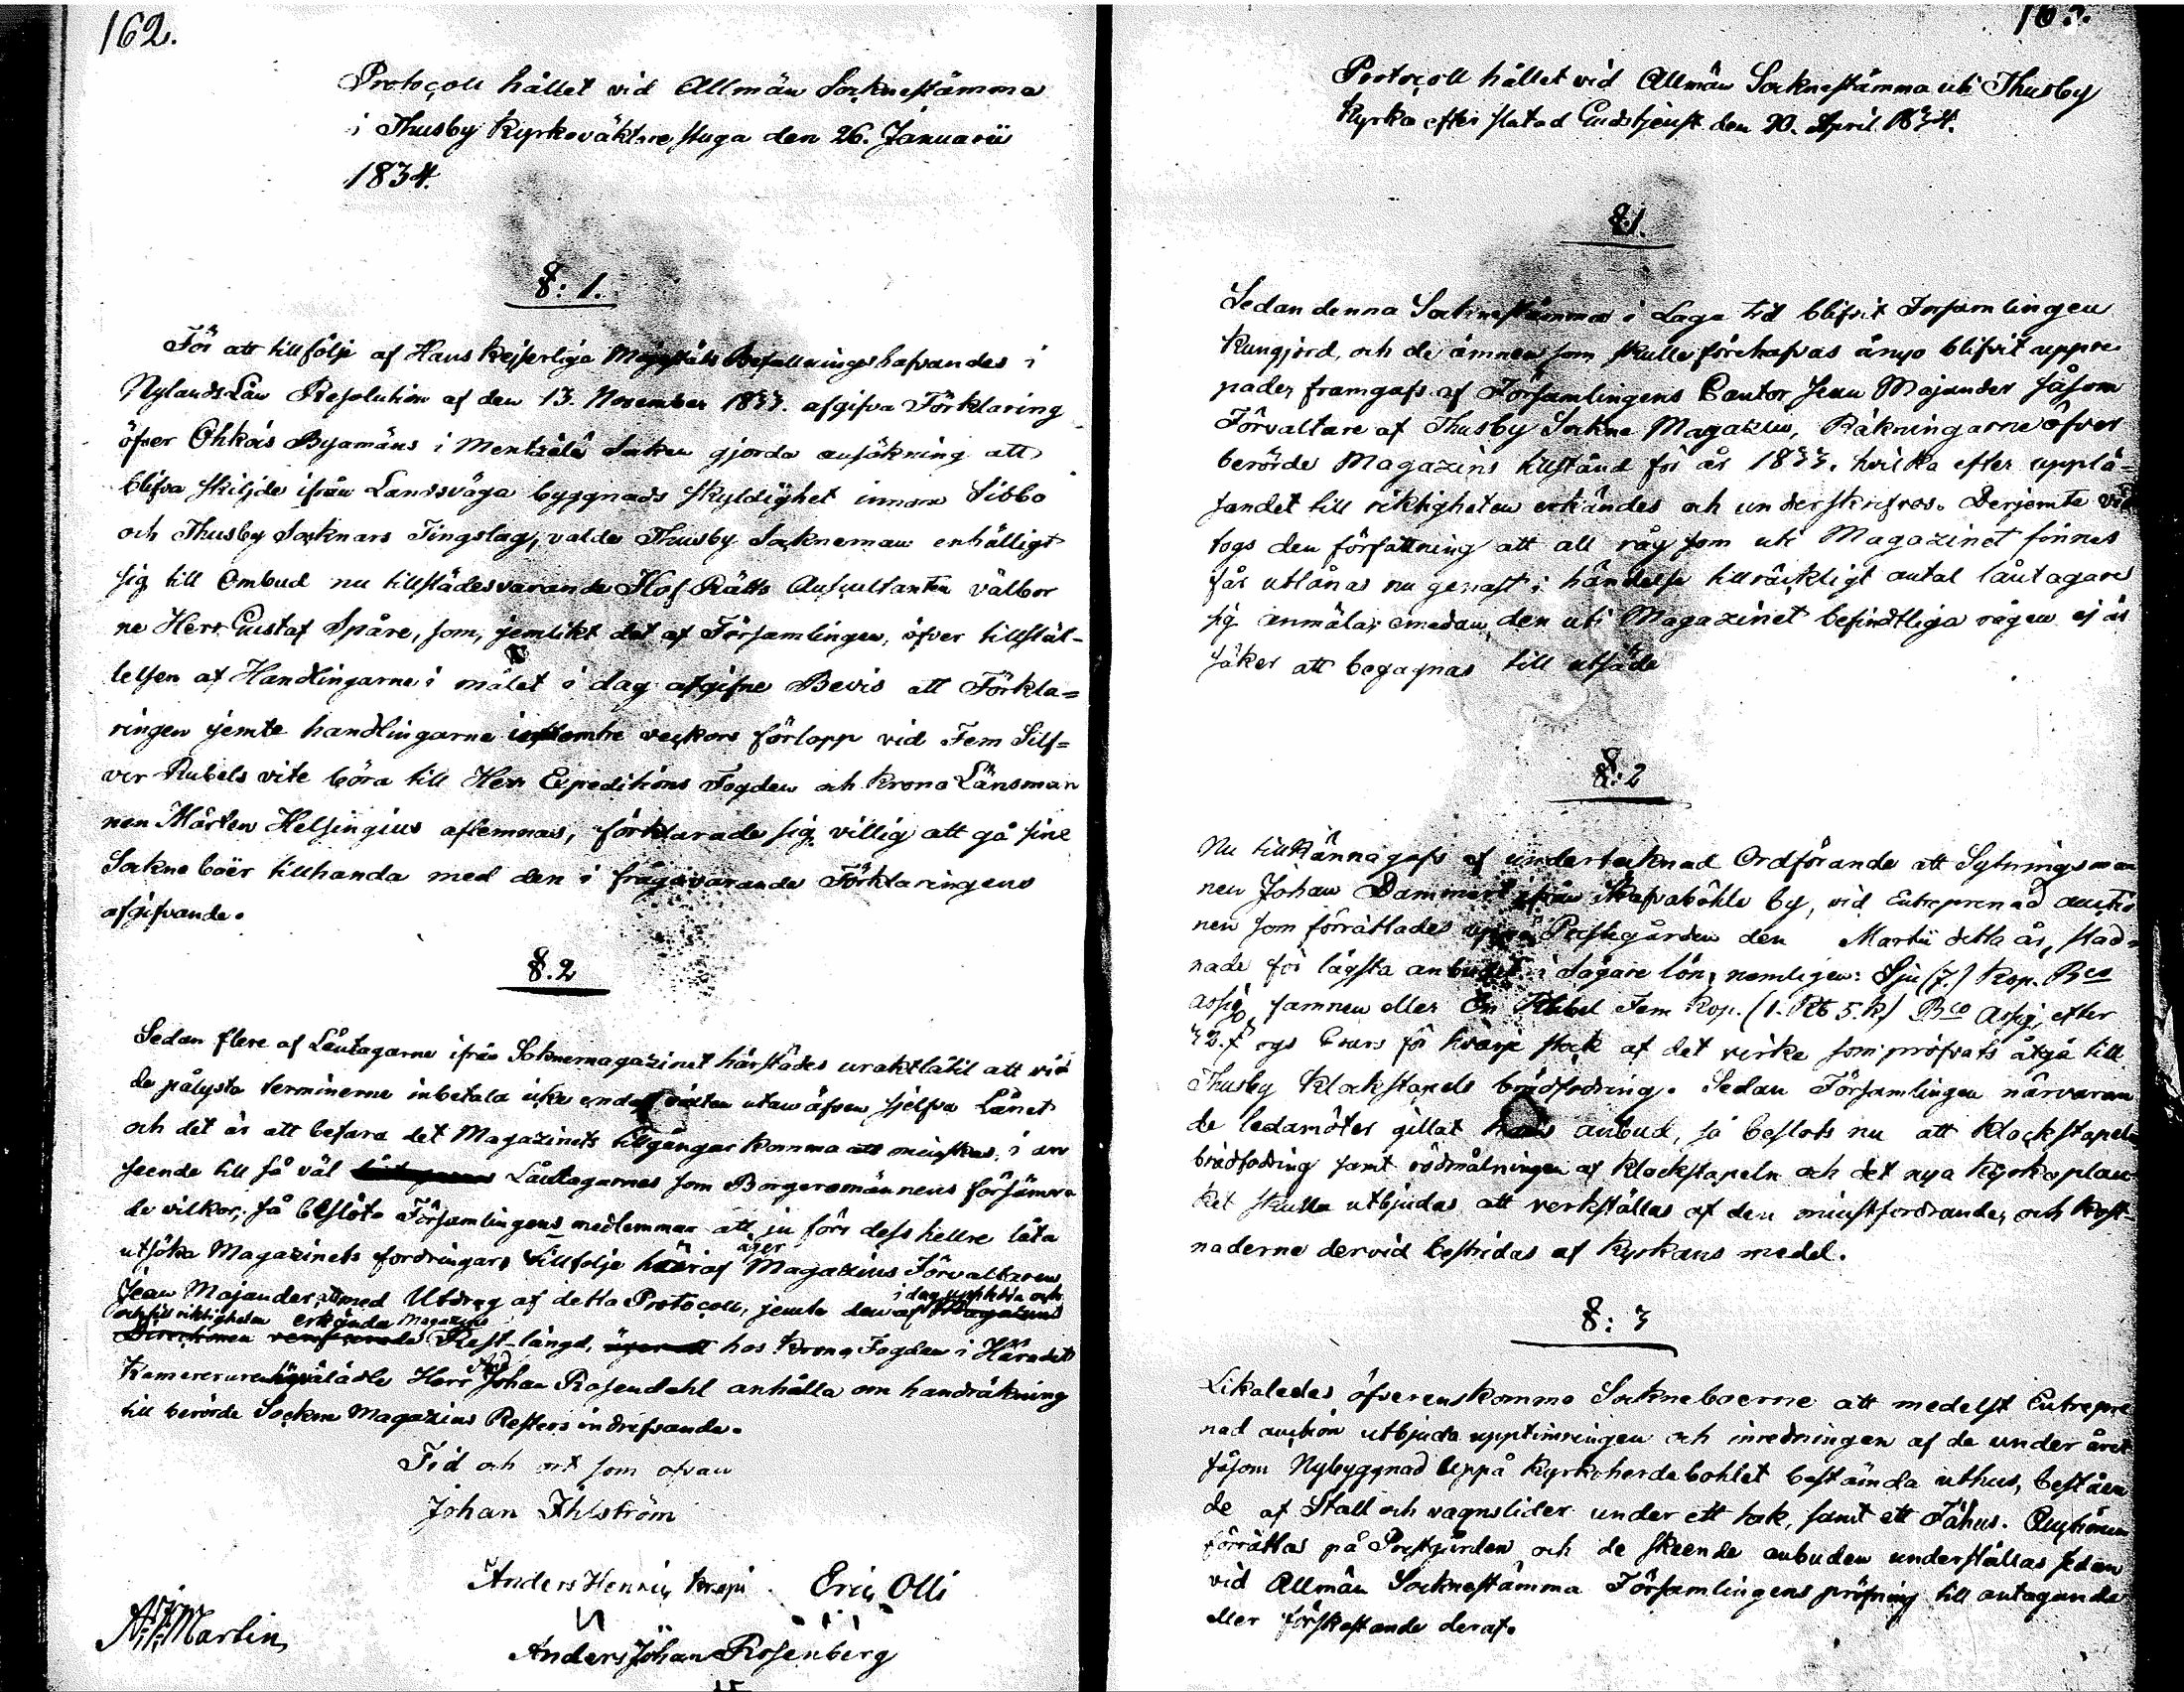 162.
Protocoll hållet vid Allmän Socknestämma
i Thusby Kyrkoväktare stuga den 26. Januarii
1834.
§: 1.
För att till följe af Hans Kejserliga Majestäts Befallningshafvandes i
Nylands Län Resolution af den 13. November 1833. afgifva Förklaring
öfver Ohkois Byamäns i Mentzälä Socken gjorda ansökning att
blifva skiljde ifrån Landsväga byggnads skyldighet innom Sibbo
och Thusby Socknars Tingslag, valde Thusby Socknemän enhälligt
sig till Ombud nu tillstädesvarande Hof Rätts Auscultanten välbor
ne Herr Gustaf Spåre, som, jemlikt det af Församlingen, öfver tillstäl-
lelsen af Handlingarne i målet i dag afgifne Bevis att Förkla=
ringen jemte handlingarne veckors förlopp vid Fem Silf=
ver Rubels vite böra till Herr Expeditions Fogden och Krono Länsman
nen Mårten Helsingius aflemnas, förklarade sig villig att gå sine
Sockneboër tillhanda med den i frågavarande Förklaringens
afgifvande.
§.2
Sedan flere af Låntagarne ifrån Soknemagazinet härstädes uraktlåtit att vid
de pålysta terminerne inbetala icke endast räntan utan äfven sjelfva Lånet
och det är att befara det Magazinets tillgångar komma att minskas, i an
seende till så väl Låntagarnes som Borgesmännens försämra
de vilkor; så beslöto Församlingens medlemmar att ju förr dess hellre låta
utsöka Magazinets fordringar, tillfölje häraf äger Magazins Förvaltaren
Jean Majander, att med Utdrag af detta Protocoll, jemte den i dag upplästa och
till riktigheten erkända Magazins
Rest-längd, hos Krono Fogden i Häradet
Kamereraren Herr Johan Rosendahl anhålla om handräkning
till berörde Sockne Magazins Resters indrifvande.
Tid och ort som ofvan
Johan Ihlström
Anders Henric Krepi . Eric Olli
Martin
Anders Johan Rosenberg
Protocoll hållet vid Allmän Socknestämma uti Thusby
Kyrka efter slutad Gudstjenst den 20. April 1834.
§.1.
Sedan denna Socknestämma i Laga tid blifvit Församlingen
kungjord, och de ämnen som skulle förehafvas ånyo blifvit uppre
pade, framgafs af Församlingens Cantor Jean Majander såsom
Förvaltare af Thusby Sockne Magazin, Räkningarne öfver
berörde Magazins tillstånd för år 1833. hvilka efter upplä=
sandet till riktigheten erkändes och underskrefvos. Derjemte vid
togs den författning att all råg som uti Magazinet finnes
får utlånas nu genast i händelse tillräckligt antal låntagare
sig anmäla, emedan den uti Magazinet befindtliga rågen ej är
säker att begagnas till utsäde
§:2
Nu tillkännagafs af undertecknad Ordförande att Sytningsman
nen Johan Dammert ifrån Skafvaböhle by, vid Entreprenad auctio
nen som förrättades uppå Prestegården den Martii detta år, stad=
nade för lägsta anbudet i sågare lön, nemligen: Sju (7.) Kop. Bco
assig. famnen eller En Rubel Fem Kop. (1. Rb 5. K.) Bco Assig. efter
Cours för hvarje stock af det virke som pröfvats åtgå till
Thusby Klockstapels brädfodring. Sedan Församlingen närvaran
de ledamöter gillat hans anbud, så beslöts nu att klockstapels
brädfodring samt rödmålningen af Klockstapeln och det nya Kyrkoplan
ket skulle utbjudas att verkställas af den minstfordrande, och kost-
naderne dervid bestridas af Kyrkans medel.
§: 3
Likaledes öfverenskommo Socknebоerne att medelst Entrepre
nad auction utbjuda upptimringen och inredningen af de under året
såsom Nybyggnad uppå Kyrkoherdebohlet bestämda uthus, beståen
de af Stall och vagnslider under ett tak, samt ett Fähus. Auctionen
förrättas på Prestgården och de skeende anbuden underställas sedan
vid Allmän Socknestämma Församlingens pröfning till antagande
eller förkastande deraf.